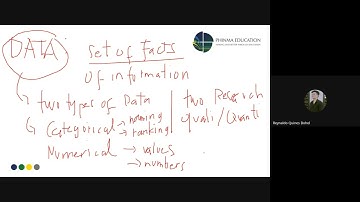 DATA
set of facts
of information
PHINMA EDUCATION
two types of Data
Categorical → naming
→ ranking
Numerical → values
→ numbers
two Research
quali/Quanti
Reynaldo Quines Dohol